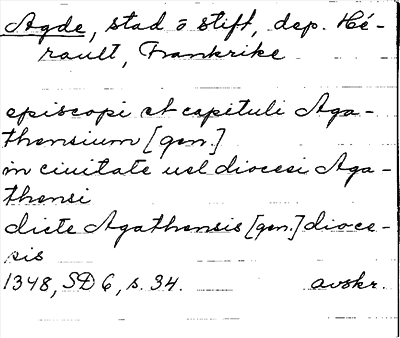 Agde, stad o stift, dep. Hé-
rault, Frankrike
episcopi et capituli Aga-
thensium [gen.]
in ciuitate uel diocesi Aga-
thensi
dicte Agathensis [gen.] dioce-
sis
1348, SD 6, s. 34. avskr.